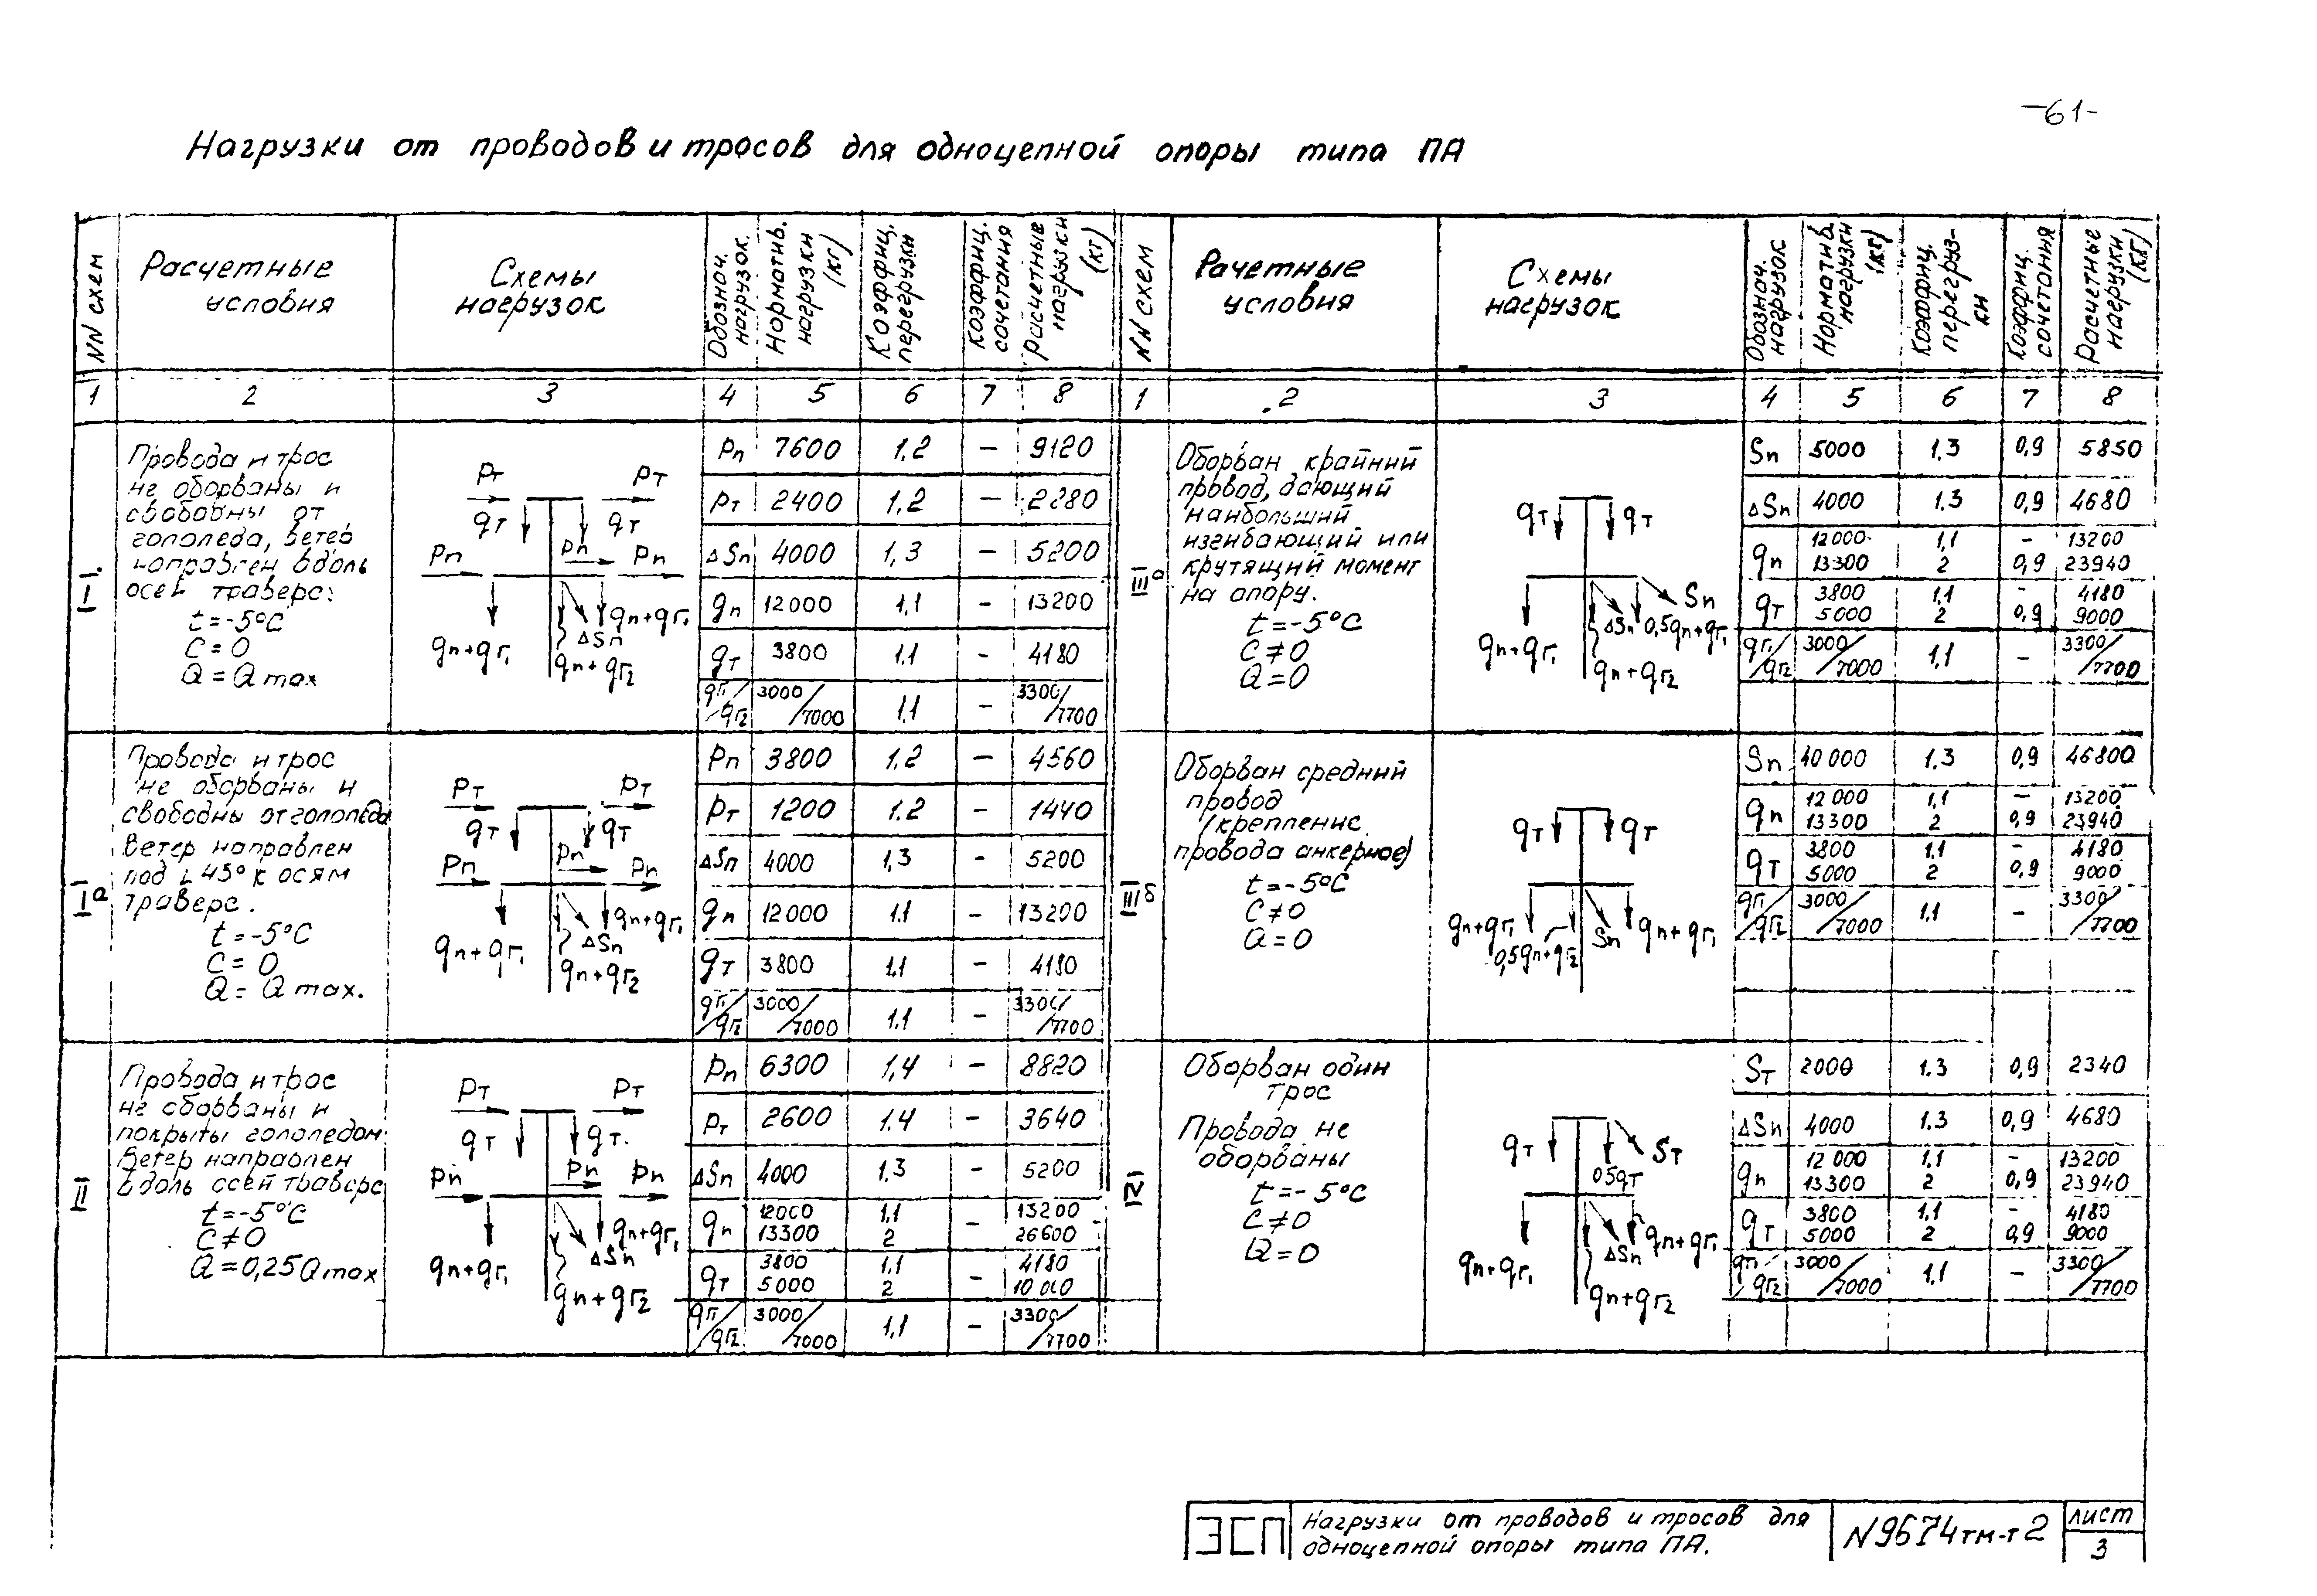 -61-
Нагрузки от проводов и тросов для одноцепной опоры типа ПА
NN схем
Расчетные
условия
Схемы
нагрузок
Обознач.
нагрузок.
Норматив.
нагрузки
(кг)
Коэффиц.
перегрузки
Коэффиц.
сочетания
Расчетные
нагрузки
(кг)
1 2 3 4 5 6 7 8
I.
Провода и трос
не оборваны и
свободны от
гололеда, ветер
направлен вдоль
осей траверс:
t=-5°C
C=0
Q=Qmax
Pт Pт
qт qт
Pп Pп Pп
qп+qг1 ΔSп qп+qг1
qп+qг2
Pп 7600 1.2 – 9120
Pт 2400 1,2 – 2280
ΔSп 4000 1,3 – 5200
qп 12000 1,1 – 13200
qт 3800 1.1 – 4180
qг1/qг2 3000/7000 1.1 – 3300/7700
Iа
Провода и трос
не оборваны и
свободны от гололеда
Ветер направлен
под ∟45° к осям
траверс.
t=-5°C
C=0
Q=Qmax.
Pт Pт
qт qт
Pп Pп Pп
qп+qг1 ΔSп qп+qг1
qп+qг2
Pп 3800 1.2 – 4560
Pт 1200 1.2 – 1440
ΔSп 4000 1,3 – 5200
qп 12000 1.1 – 13200
qт 3800 1.1 – 4180
qг1/qг2 3000/7000 1.1 – 3300/7700
II
Провода и трос
не оборваны и
покрыты гололедом
Ветер направлен
вдоль осей траверс
t=-5°C
C≠0
Q=0,25Qmax
Pт Pт
qт qт.
Pп Pп Pп
qп+qг1 ΔSп qп+qг1
qп+qг2
Pп 6300 1,4 – 8820
Pт 2600 1.4 – 3640
ΔSп 4000 1.3 – 5200
qп 12000 1.1 – 13200
13300 2 26600
qт 3800 1.1 – 4180
5000 2 10000
qг1/qг2 3000/7000 1,1 – 3300/7700
NN схем
Рачетные
условия
Схемы
нагрузок
Обознач.
нагрузок
Норматив.
нагрузки
(кг)
Коэффиц.
перегруз-
ки
Коэффиц.
сочетания
Расчетные
нагрузки
(кг)
1 2 3 4 5 6 7 8
IIIа
Оборван крайний
провод, дающий
наибольший
изгибающий или
крутящий момент
на опору.
t=-5°C
C≠0
Q=0
qт qт
Sп
qп+qг1 ΔSп 0,5qп+qг1
qп+qг2
Sп 5000 1.3 0,9 5850
ΔSп 4000 1.3 0,9 4680
qп 12000 1,1 – 13200
13300 2 0,9 23940
qт 3800 1.1 – 4180
5000 2 0,9 9000
qг1/qг2 3000/7000 1,1 – 3300/7700
IIIб
Оборван средний
провод
(крепление
провода анкерное)
t=-5°C
C≠0
Q=0
qт qт
qп+qг1 0,5qп+qг2 Sп qп+qг1
Sп 40000 1.3 0,9 46800
qп 12000 1,1 – 13200
13300 2 0,9 23940
qт 3800 1.1 – 4180
5000 2 0,9 9000
qг1/qг2 3000/7000 1,1 – 3300/7700
IV
Оборван один
трос
Провода не
оборваны
t=-5°C
C≠0
Q=0
qт 0.5qт Sт
qп+qг1 ΔSп qп+qг1
qп+qг2
Sт 2000 1.3 0,9 2340
ΔSп 4000 1.3 0,9 4680
qп 12000 1,1 – 13200
13300 2 0,9 23940
qт 3800 1,1 – 4180
5000 2 0,9 9000
qг1/qг2 3000/7000 1,1 – 3300/7700
ЭСП
Нагрузки от проводов и тросов для
одноцепной опоры типа ПА.
N9674тм-т2
лист
3